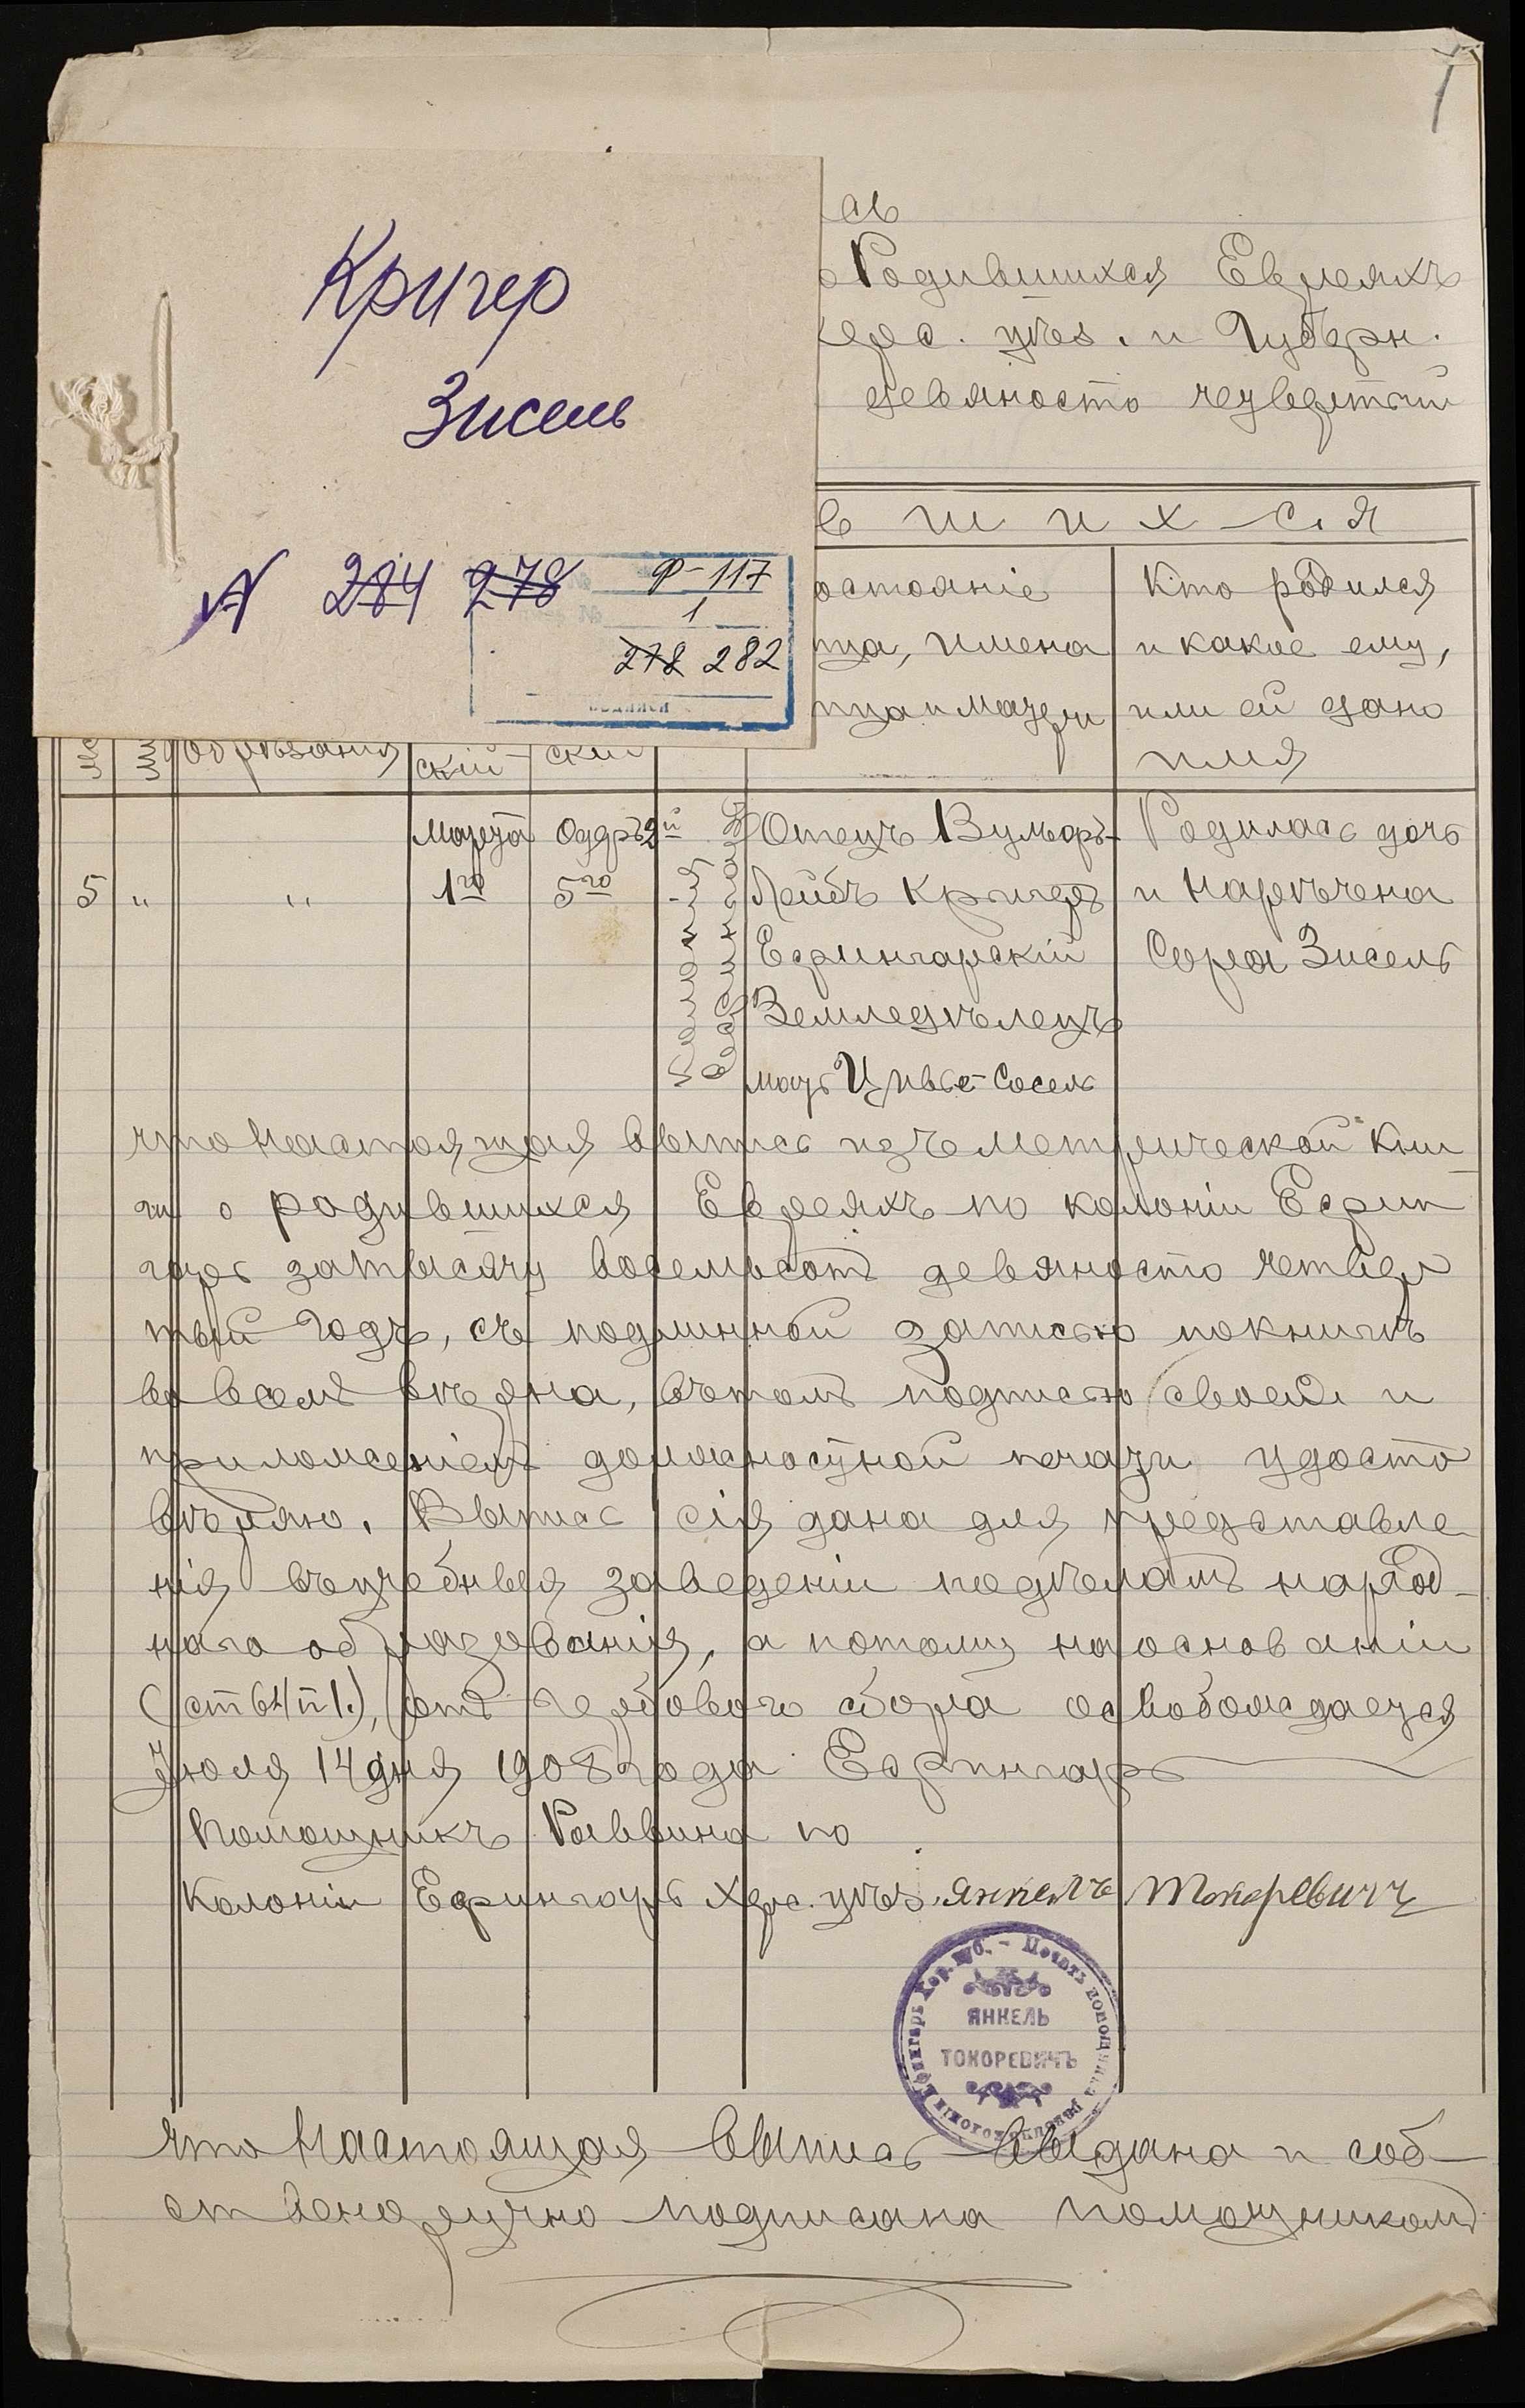 1
Кригер
Зисель
284 278
Ф-117
1
278 282
сь
Родившихся Евреяхъ
Херс. уѣз. и Губерн.
девяносто четвертый
в ш и х - с я
остояніе
тца, имена
тца и матери
Кто родился
и какое ему,
или ей дано
имя
обрѣзанія
скій
скій
Марта
1го
Оддръ 2й
5го
5 " "
Колонія
Отецъ Вульфъ-
Лейбъ Кригеръ
Ефингарскій
Земледѣлецъ
мать Цивье-Сосель
Родилась дочь
и наречена
Сора Зисель
что настоящая выпись изъ метрической кни-
ги о родившихся Евреяхъ по колоніи Ефин
гарь за тысячу восемьсотъ девяносто четвер
тый годъ, съ подлинной записью по книгѣ
во всемъ вѣрна, въ томъ подписью своей и
приложеніемъ должностной печати удосто
вѣряю. Выпись сія дана для представле
нія въ учебныя заведеніи по дѣламъ народ-
наго образованія, а потому на основаніи
(ст 64 п 1.), отъ гербоваго сбора освобождается
Іюля 14 дня 1908 года Ефингарь
Помощникъ Раввина по
Колоніи Ефингарь Херс. уѣз. Янкель Токоревичъ
ЯНКЕЛЬ
ТОКОРЕВИЧЪ
что настоящая выпись выдана и соб-
ственоручно подписана помощникомъ